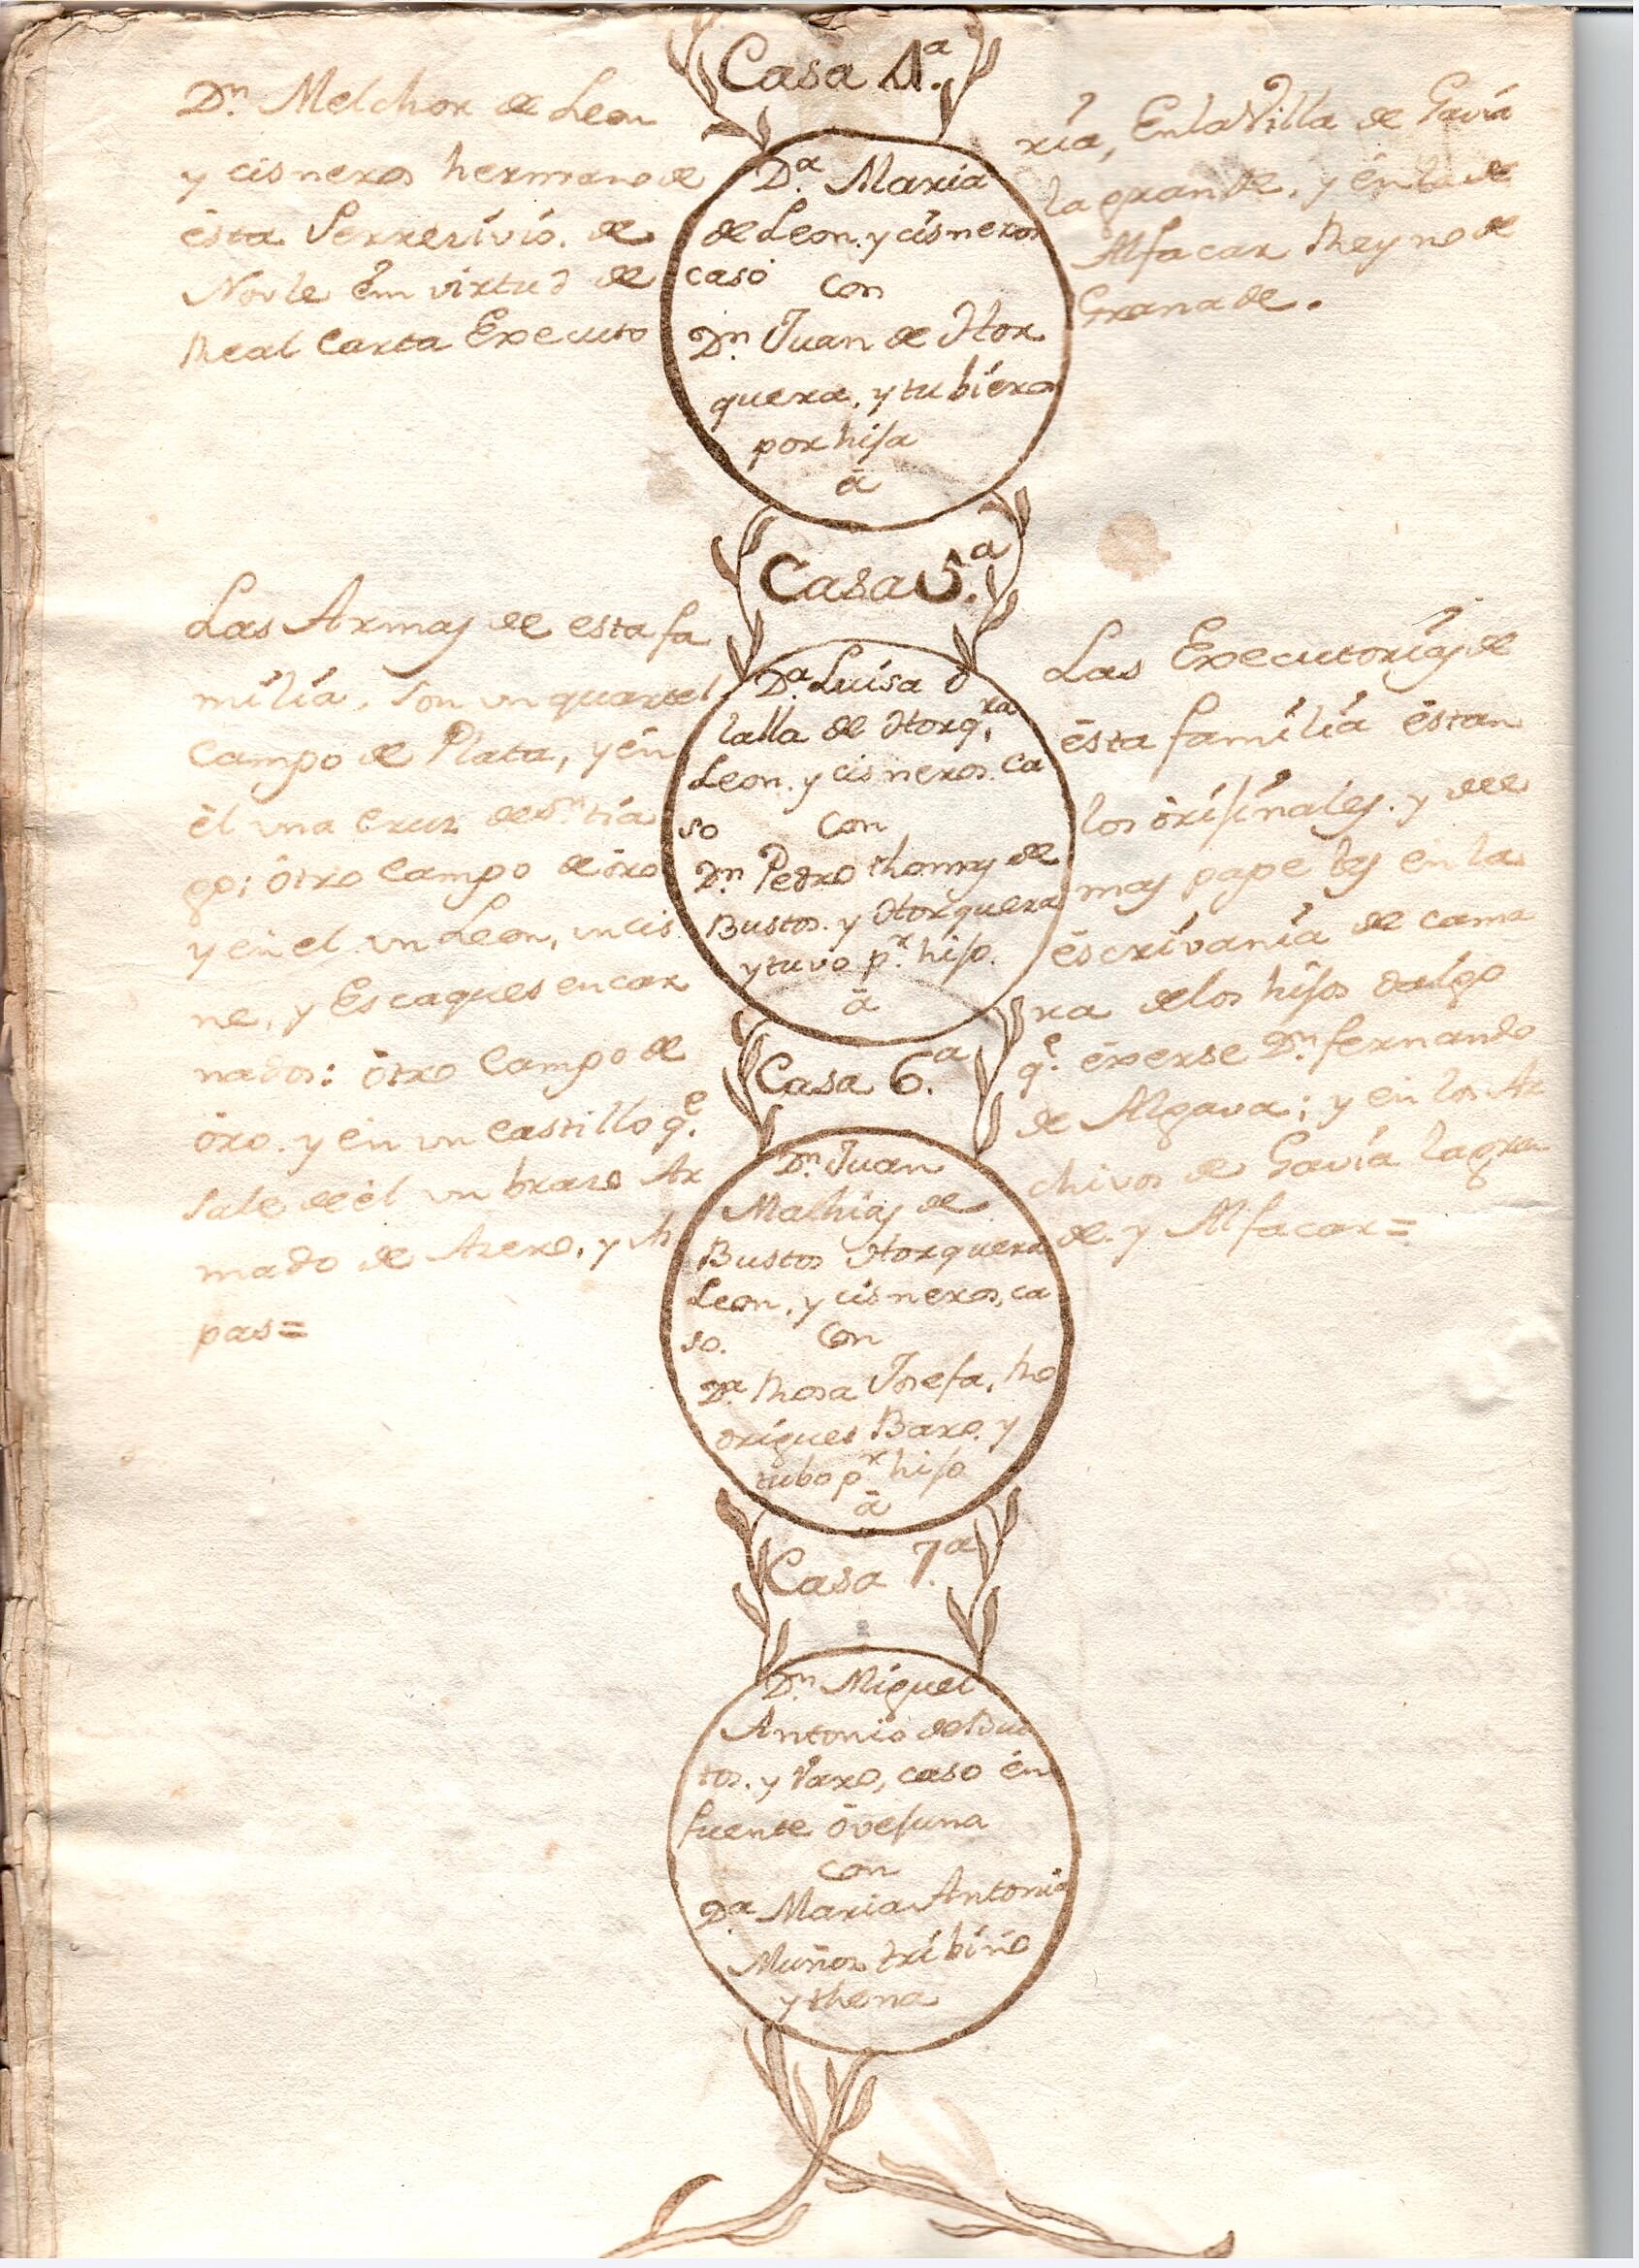 Casa 4.ª
Dn. Melchor de Leon
y cisneros hermano de
ésta Serresivió. de
Noble ém virtud de
Real Carta Executo
ría, En la Villa de Gavia
la grande. y én la de
Alfacar Reyno de
Granade.
Da. Maria
de Leon. y cisneros
casó con
Dn. Juan de Hor
quera, y tubieron
por hija
â
Casa 5.ª
Las Armas de esta fa
milia, son un quartel
Campo de Plata, y én
él una Cruz de Sn. tia
go; ótro Campo de óro
y en el un Leon, un cis
ne, y Escaques encar
nados: ótro Campo de
óro. y én un Castillo q.e
sale de él un braso Ar
mado de Asero, y As
pas=
Da. Luisa
lalla de Horq.ra
Leon. y cisneros. ca
so con
Dn. Pedro thomas de
Bustos. y Horquera
y tuvo p.r hijo.
â
Las Executorias de
ésta família éstan
los órijínales. y de e
mas papeles en la
éscrívanía de cama
ra de los hijos dalgo
q.e éxerse Dn. fernando
de Algava; y en los Ar
chivos de Gavía la gran
de. y Alfacar=
Casa 6.ª
Dn. Juan
Mathias de
Bustos Horquera
Leon. y cisneros, ca
so. con
Da. Rosa Josefa, Ro
drigues Baro. y
tubo p.r hijo
â
Casa 7.ª
Dn. Miguel
Antonio de Bus
tos. y Varo, casó én
fuente óvejuna
con
Da. Maria Antonia
Muños tribiño
y thena